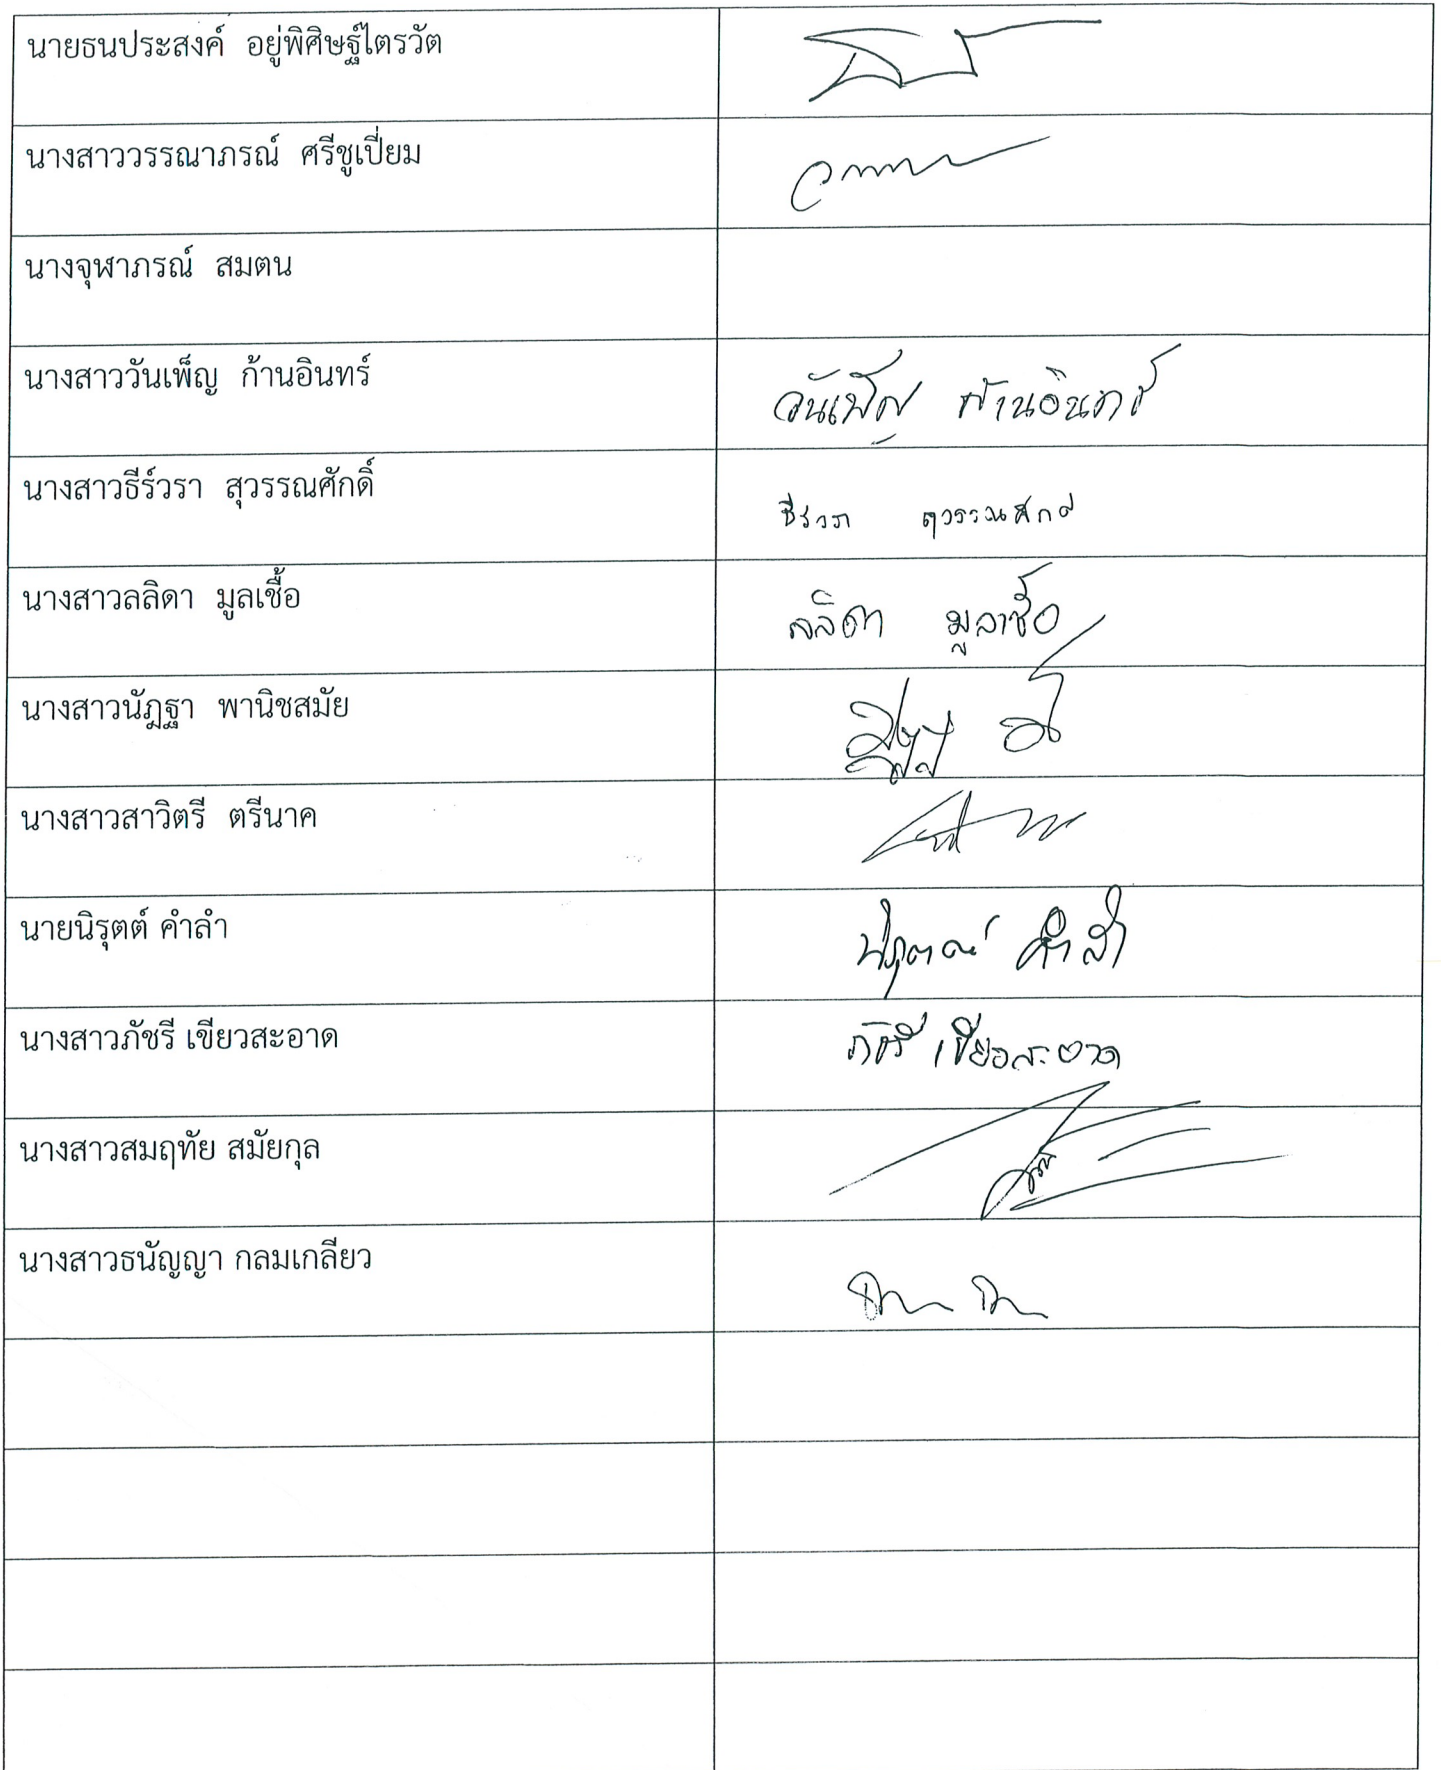 นายธนประสงค์ อยู่พิศิษฐ์ไตรวัต
นางสาววรรณาภรณ์ ศรีชูเปี่ยม
นางจุฬาภรณ์ สมตน
นางสาววันเพ็ญ ก้านอินทร์ วันเพ็ญ ก้านอินทร์
นางสาวธีร์วรา สุวรรณศักดิ์ ธีร์วรา สุวรรณศักดิ์
นางสาวลลิดา มูลเชื้อ ลลิดา มูลเชื้อ
นางสาวนัฎฐา พานิชสมัย
นางสาวสาวิตรี ตรีนาค
นายนิรุตต์ คำลำ คำลำ
นางสาวภัชรี เขียวสะอาด ภัชรี เขียวสะอาด
นางสาวสมฤทัย สมัยกุล
นางสาวธนัญญา กลมเกลียว